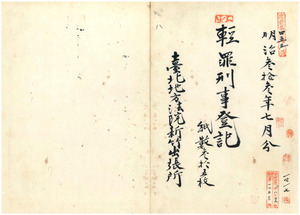 明治叁拾叁年七月分
輕罪刑事登記
紙數叁拾五枚
臺北地方法院新竹出張所